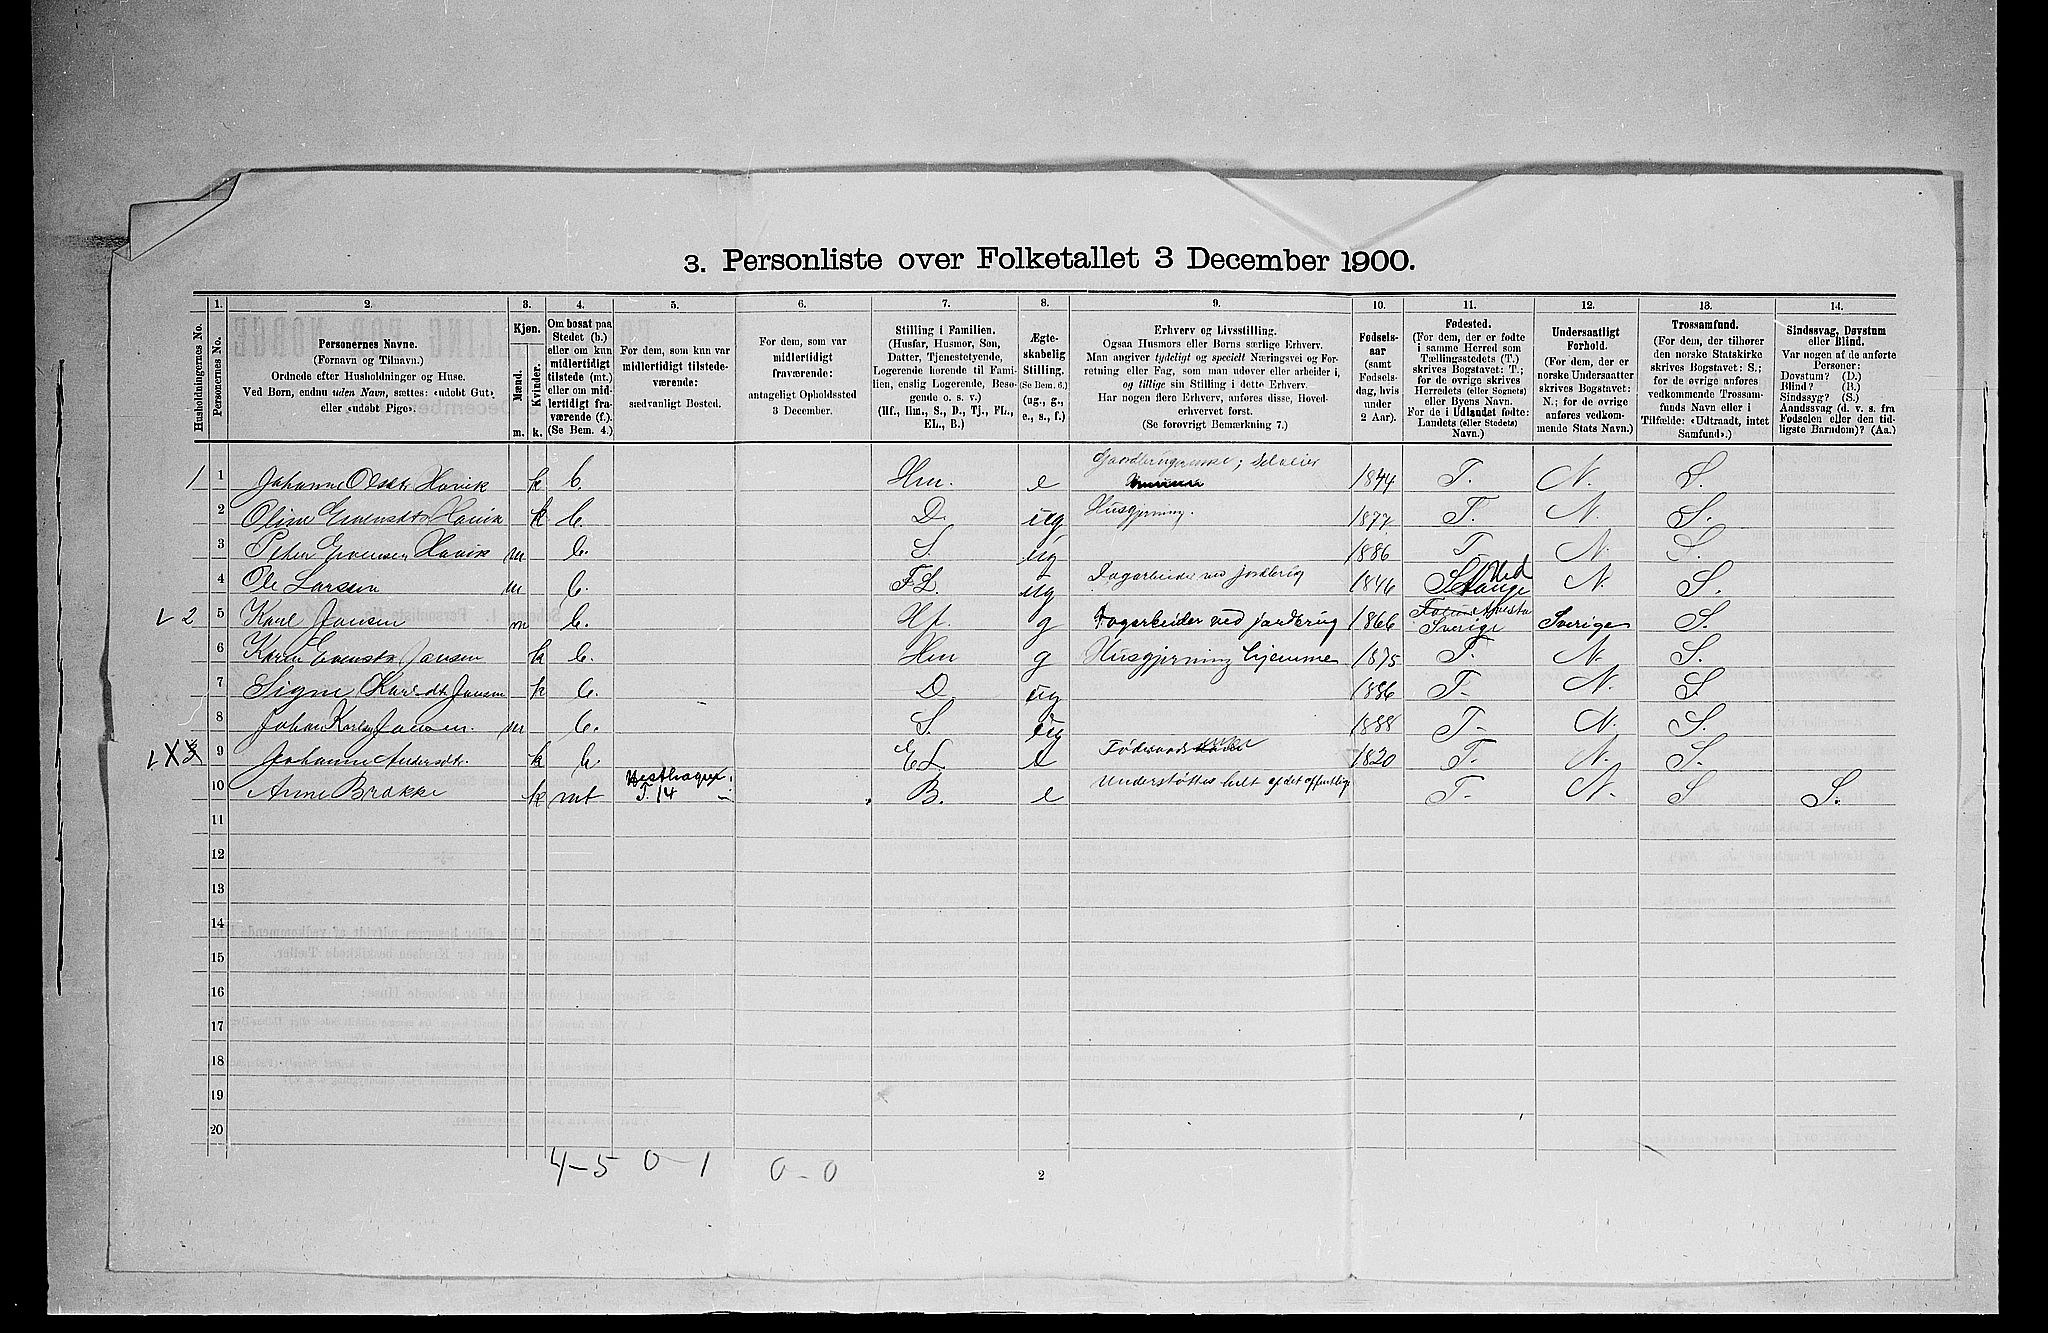 3. Personliste over Folketallet 3 December 1900.
1. 2. 3. 4. 5. 6. 7. 8. 9. 10. 11. 12. 13. 14.
Husholdningernes No.
Personernes No.
Personernes Navne.
(Fornavn og Tilnavn.)
Ordnede efter Husholdninger og Huse.
Ved Børn, endnu uden Navn, sættes: «udøbt Gut»
eller «udøbt Pige».
Kjøn.
Mænd. Kvinder.
m. k.
Om bosat paa
Stedet (b.)
eller om kun
midlertidigt
tilstede (mt.)
eller om mid-
lertidigt fra-
værende (f.).
(Se Bem. 4.)
For dem, som kun var
midlertidigt tilstede-
værende:
sædvanligt Bosted.
For dem, som var
midlertidigt
fraværende:
antageligt Opholdssted
3 December.
Stilling i Familien.
(Husfar, Husmor, Søn,
Datter, Tjenestetyende,
Logerende hørende til Fami-
lien, enslig Logerende, Besø-
gende o. s. v.)
(Hf., Hm., S., D., Tj., FL.,
EL., B.)
Ægte-
skabelig
Stilling.
(Se Bem. 6.)
(ug., g.,
e., s., f.)
Erhverv og Livsstilling.
Ogsaa Husmors eller Børns særlige Erhverv.
Man angiver tydeligt og specielt Næringsvei og For-
retning eller Fag, som man udøver eller arbeider i,
og tillige sin Stilling i dette Erhverv.
Har nogen flere Erhverv, anføres disse, Hoved-
erhvervet først.
(Se forøvrigt Bemærkning 7.)
Fødsels-
aar
(samt
Fødsels-
dag, hvis
under
2 Aar).
Fødested.
(For dem, der er fødte
i samme Herred som
Tællingsstedets (T.)
skrives Bogstavet: T.;
for de øvrige skrives
Herredets (eller Sognets)
eller Byens Navn.
For de i Udlandet fødte:
Landets (eller Stedets)
Navn.)
Undersaatligt
Forhold.
(For dem, der er
norske Undersaatter
skrives Bogstavet:
N.; for de øvrige
anføres vedkom-
mende Stats Navn.)
Trossamfund.
(For dem, der tilhører
den norske Statskirke
skrives Bogstavet: S.;
for de øvrige anføres
vedkommende Trossam-
funds Navn eller i
Tilfælde: «Udtraadt, intet
Samfund».)
Sindssvag, Døvstum
eller Blind.
Var nogen af de anførte
Personer:
Døvstum? (D.)
Blind? (B.)
Sindssyg? (S.)
Aandssvag (d. v. s. fra
Fødselen eller den tid-
ligste Barndom)? (Aa.)
1 1 Johanne Olsdtr Hovik k b. Hm. e 1844 T. N. S.
2 Oline Evensdtr Hovik k b. D. ug Husgjerning. 1877 T. N. S.
3 Peter Evensen Hovik m b. S. ug 1886 T. N. S.
4 Ole Larsen m b. FL. ug Dagarbeider ved jordbrug 1846 Stange Hed N. S.
2 5 Karl Jansen m b. Hf. g Dagarbeider ved jordbrug 1866 Sverige Sverige S.
6 Karen Evensdtr Jansen k b. Hm g Husgjerning hjemme 1875 T. N. S.
7 Signe Karlsdtr Jansen k b. D. ug 1886 T. N. S.
8 Johan Karlsen Jansen. m b. S. ug 1888 T. N. S.
X3 9 Johanne Andersdtr. k b EL e 1820 T. N. S.
10 Anne Brakke k mt T. 14 B. e Understøttes helt af det offentlige T. N. S S.
11
12
13
14
15
16
17
18
19
20
4-5 0-1 0-0
2